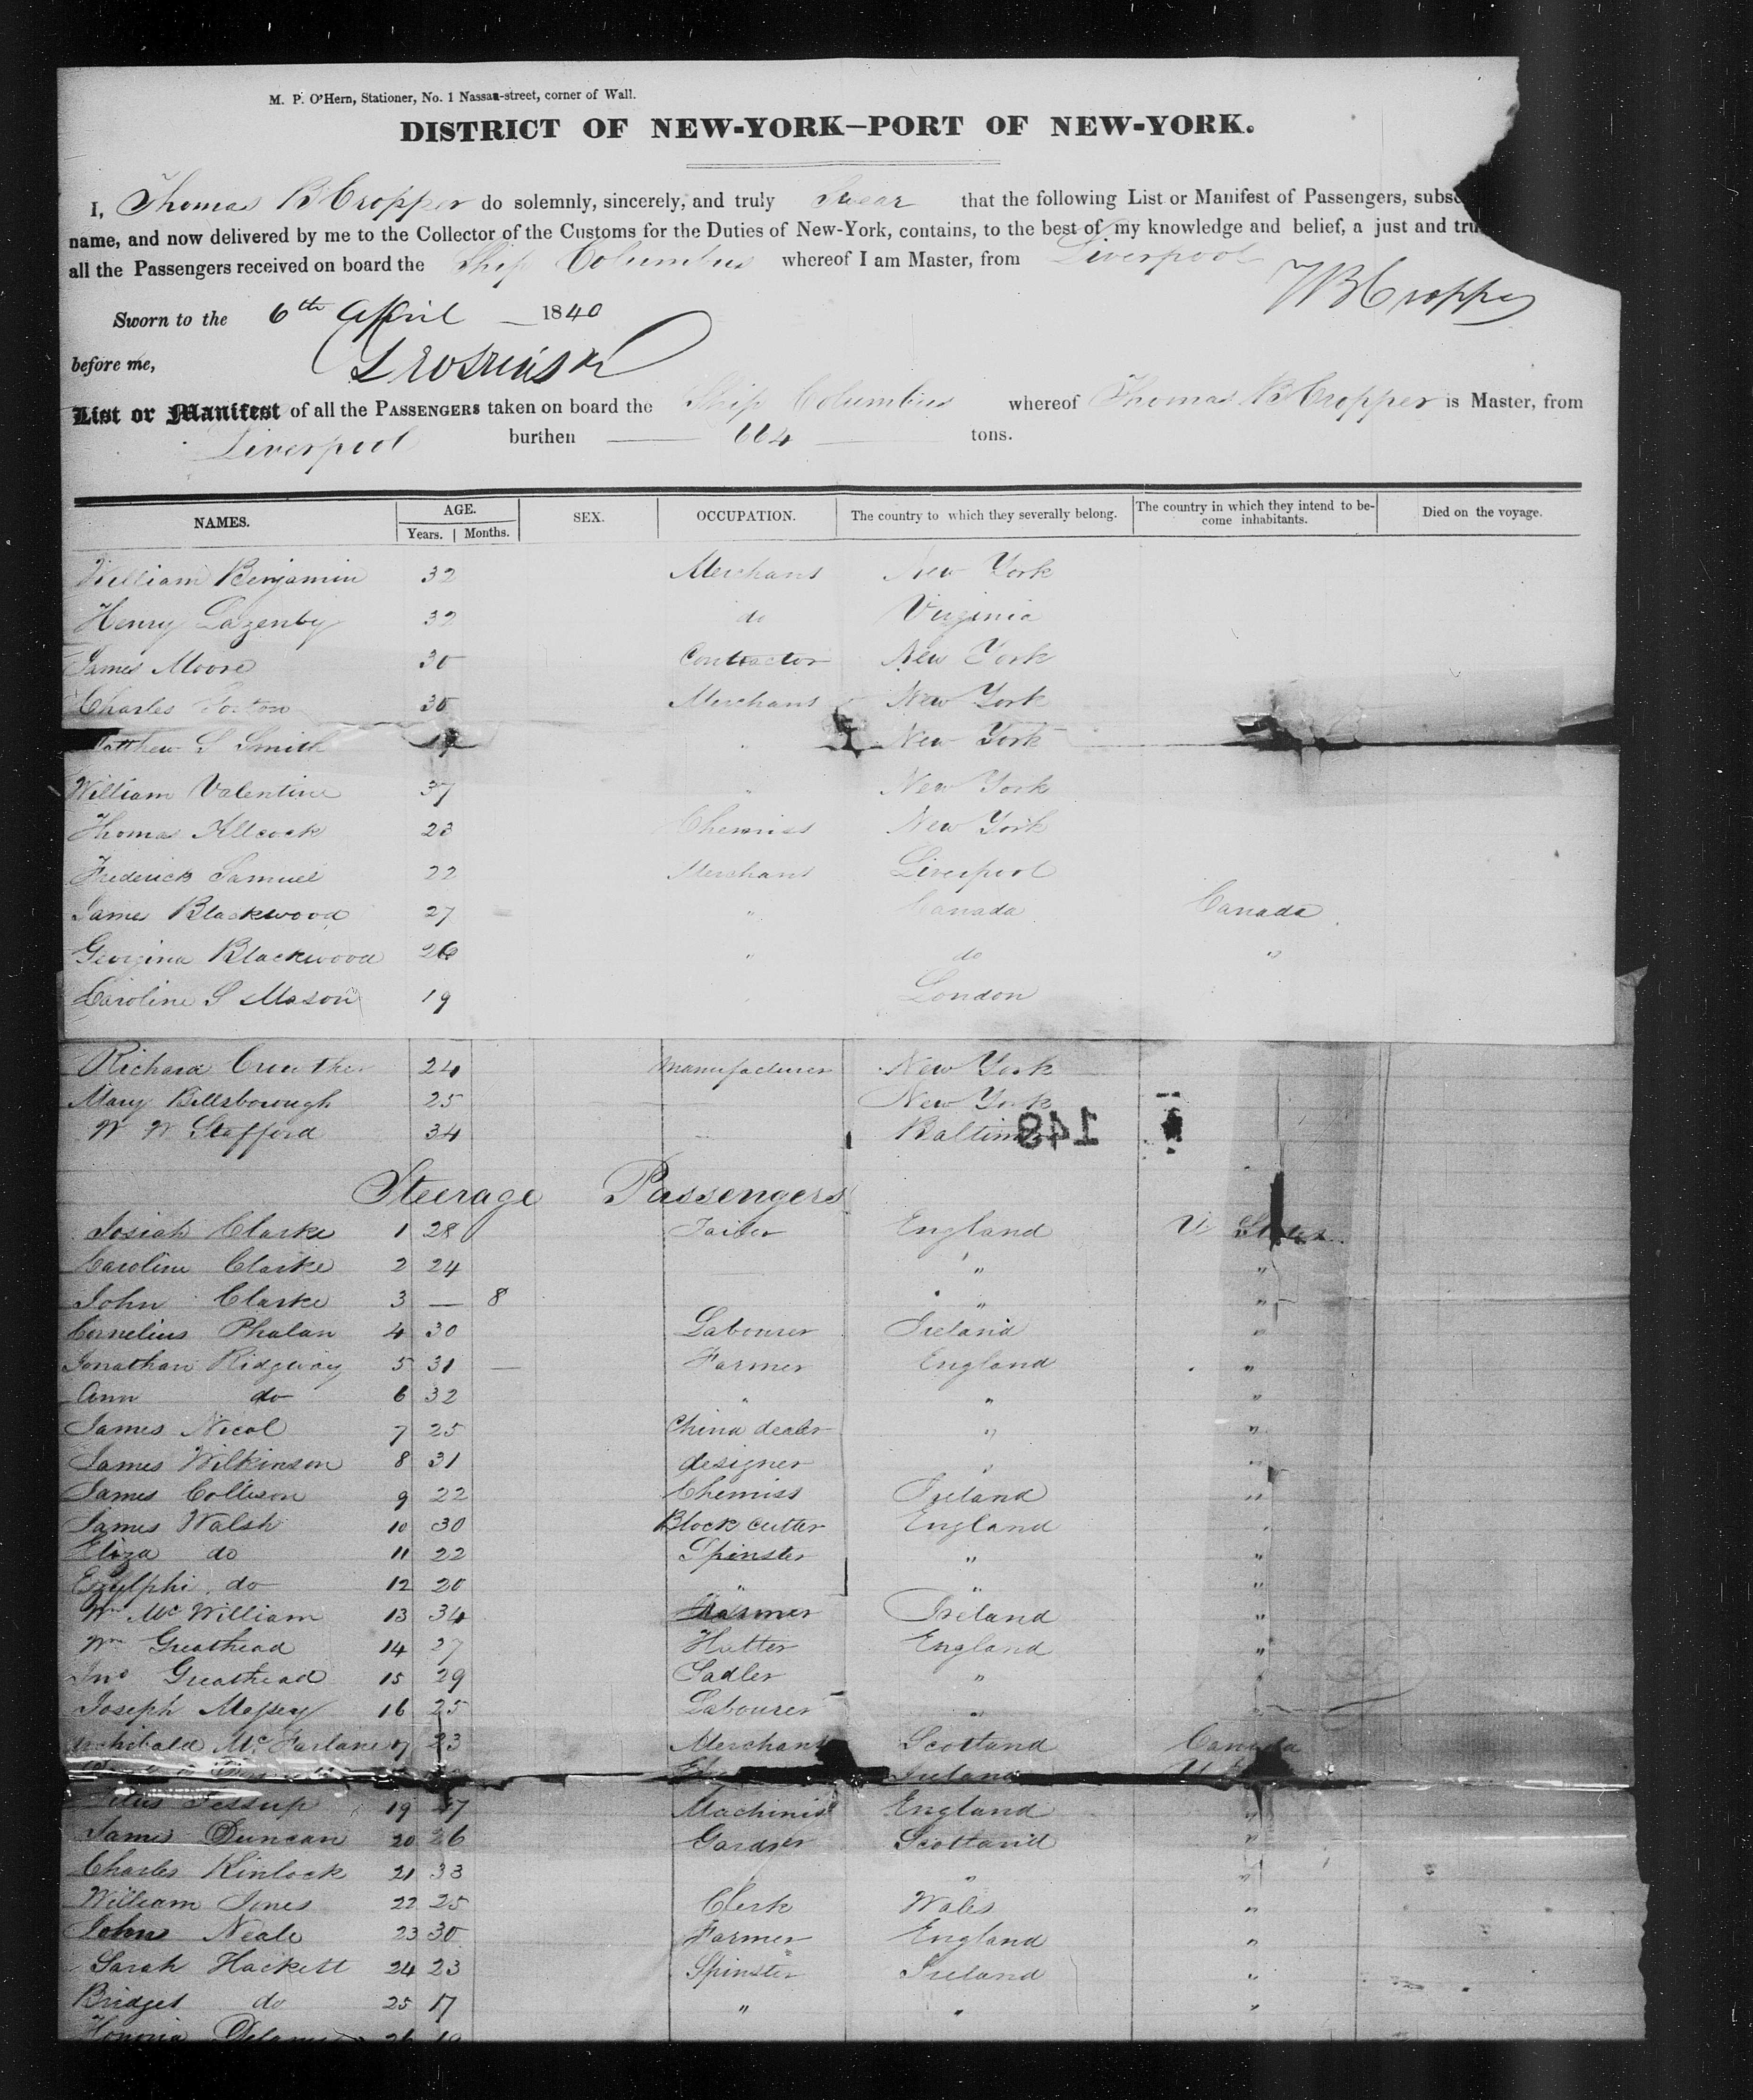 M. P. O'Hern, Stationer, No. 1 Nassau-street, corner of Wall.
DISTRICT OF NEW-YORK—PORT OF NEW-YORK.
I, Thomas B Cropper do solemnly, sincerely, and truly Swear that the following List or Manifest of Passengers,
name, and now delivered by me to the Collector of the Customs for the Duties of New-York, contains, to the best of my knowledge and belief, a just and
all the Passengers received on board the Ship Columbus whereof I am Master, from Liverpool
T B Cropper
Sworn to the 6th April 1840
before me,
List or Manifest of all the PASSENGERS taken on board the Ship Columbus whereof Thomas B Cropper is Master, from
Liverpool burthen 664 tons.
NAMES. AGE. Years. Months. SEX. OCCUPATION. The country to which they severally belong. The country in which they intend to become inhabitants. Died on the voyage.
William Benjamin 32 Merchant New York
Henry Lazenby 32 do Virginia
James Moore 30 Contractor New York
Charles 30 Merchant New York
Matthew S Smith " New York
William Valentine 37 " New York
Thomas Allcock 23 Chemist New York
Frederick Samuel 22 Merchant Liverpool
James Blackwood 27 " Canada Canada
Georgina Blackwood 26 " do "
Caroline S Mason 19 London
Richard Crowther 24 Manufacturer New York
Mary Billsborough 25 New York
W W Stafford 34 Baltimore
149
Steerage Passengers
Josiah Clarke 1 28 Tailor England U States
Caroline Clarke 2 24 — " "
John Clarke 3 — 8 " "
Cornelius Phalan 4 30 Labourer Ireland "
Jonathan Ridgway 5 31 — Farmer England "
Ann do 6 32 " " "
James Nicol 7 25 China dealer " "
James Wilkinson 8 31 designer " "
James Collison 9 22 Chemist Ireland "
James Walsh 10 30 Block cutter England "
Eliza do 11 22 Spinster " "
do 12 20 " " "
Wm McWilliam 13 34 Farmer Ireland "
Wm Greathead 14 27 Hatter England "
Jno Greathead 15 29 Sadler " "
Joseph Massey 16 25 Labourer " "
Archibald McFarlane 17 23 Merchant Scotland Canada
Ireland
Titus Jessup 19 47 Machinist England "
James Duncan 20 26 Gardner Scotland "
Charles Kinlock 21 33 " "
William Jones 22 25 Clerk Wales "
John Neale 23 30 Farmer England "
Sarah Hackett 24 23 Spinster Ireland "
Bridget do 25 17 " " "
Honoria 26